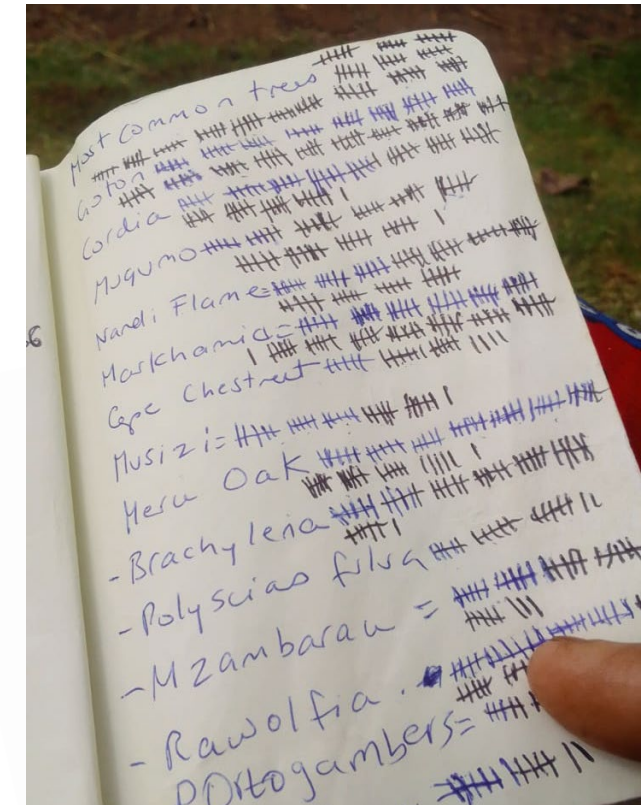 Most common trees
Croton
Cordia
Mugumo
Nandi Flame=
Markhamia=
Cape Chestnut
Musizi=
Meru Oak
- Brachylena
- Polyscias fulva
- Mzambarau =
- Rawolfia.
Portogambers=
6